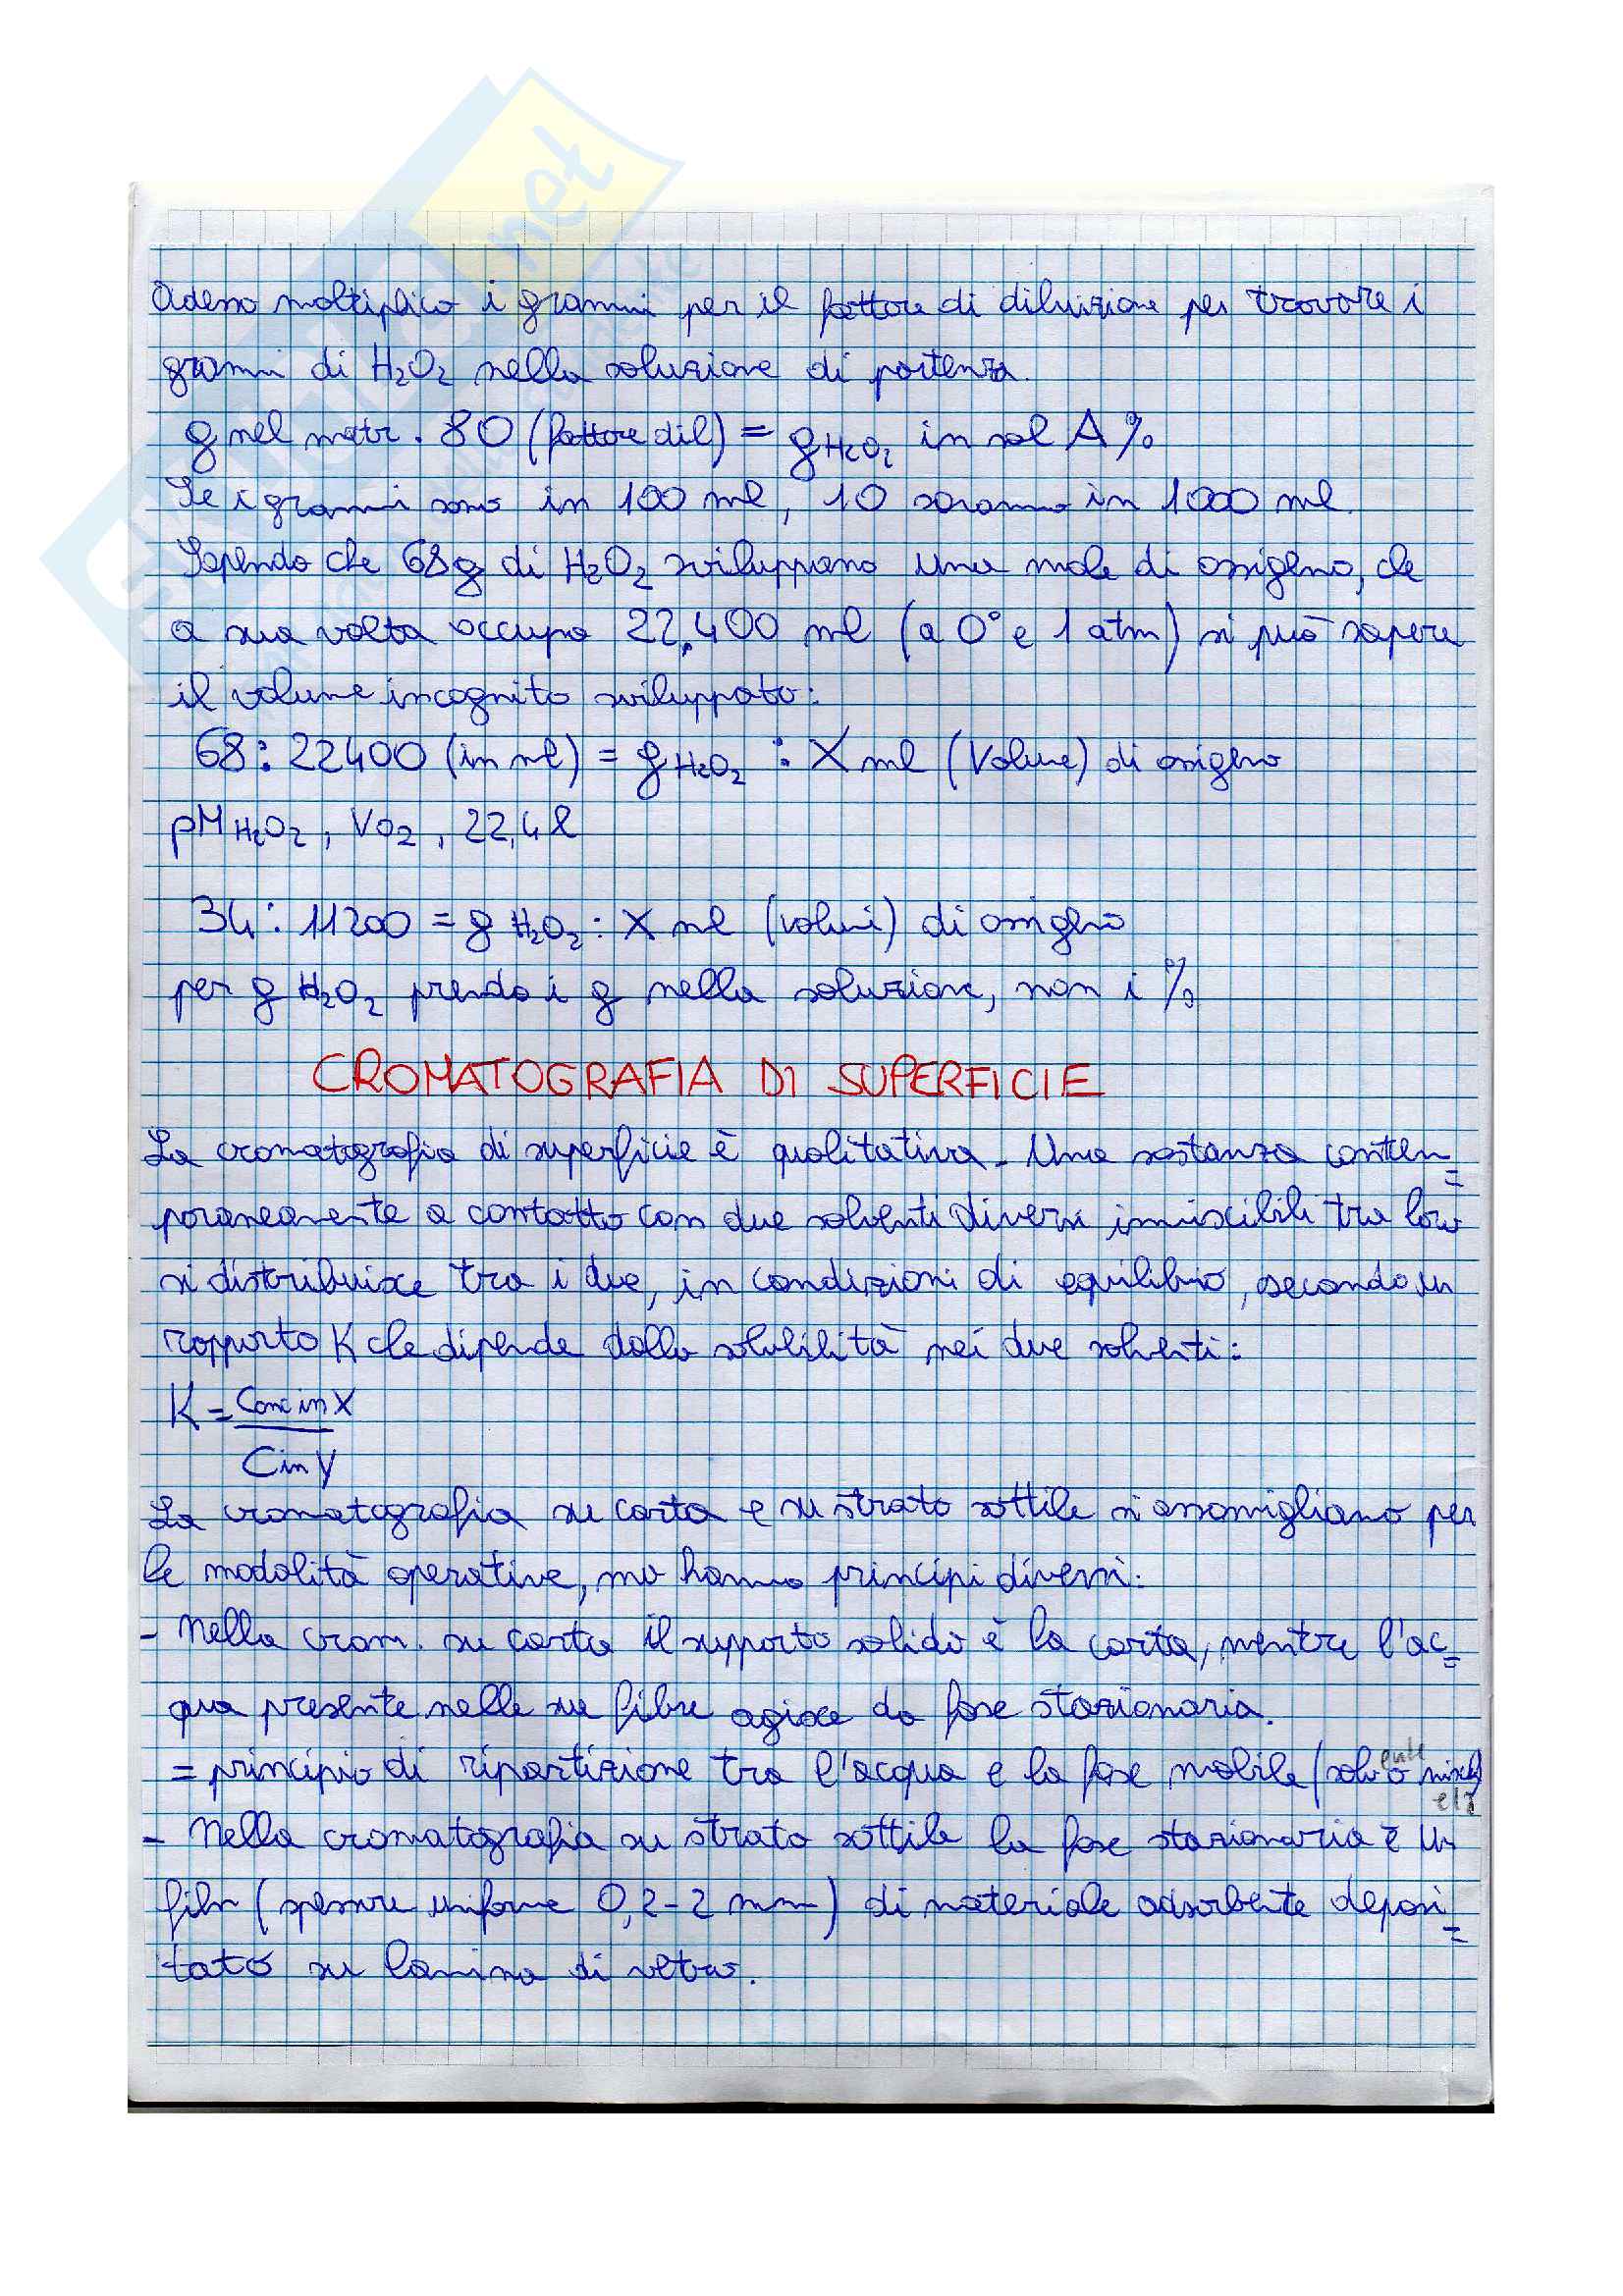 Adesso moltiplico i grammi per il fattore di diluizione per trovare i
grammi di H2O2 nella soluzione di partenza.
g nel matr. · 80 (fattore dil) = g H2O2 in sol A %
Se i grammi sono in 100 ml, 10 saranno in 1000 ml.
Sapendo che 68g di H2O2 sviluppano una mole di ossigeno, che
a sua volta occupa 22,400 ml (a 0° e 1 atm) si può sapere
il volume incognito sviluppato:
68 : 22400 (in ml) = g H2O2 : X ml (Volume) di ossigeno
pM H2O2, VO2, 22,4 l
34 : 11200 = g H2O2 : X ml (volumi) di ossigeno
per g H2O2 prendo i g nella soluzione, non i %
CROMATOGRAFIA DI SUPERFICIE
La cromatografia di superficie è qualitativa. Una sostanza contem=
poraneamente a contatto con due solventi diversi immiscibili tra loro
si distribuisce tra i due, in condizioni di equilibrio, secondo un
rapporto K che dipende dalla solubilità nei due solventi:
K = Conc in X
C in Y
La cromatografia su carta e su strato sottile si assomigliano per
le modalità operative, ma hanno principi diversi:
- Nella crom. su carta il supporto solido è la carta, mentre l'ac=
qua presente nelle sue fibre agisce da fase stazionaria.
= principio di ripartizione tra l'acqua e la fase mobile (solv o
- Nella cromatografia su strato sottile la fase stazionaria è un
film (spessore uniforme 0,2-2 mm) di materiale adsorbente deposi=
tato su lamina di vetro.